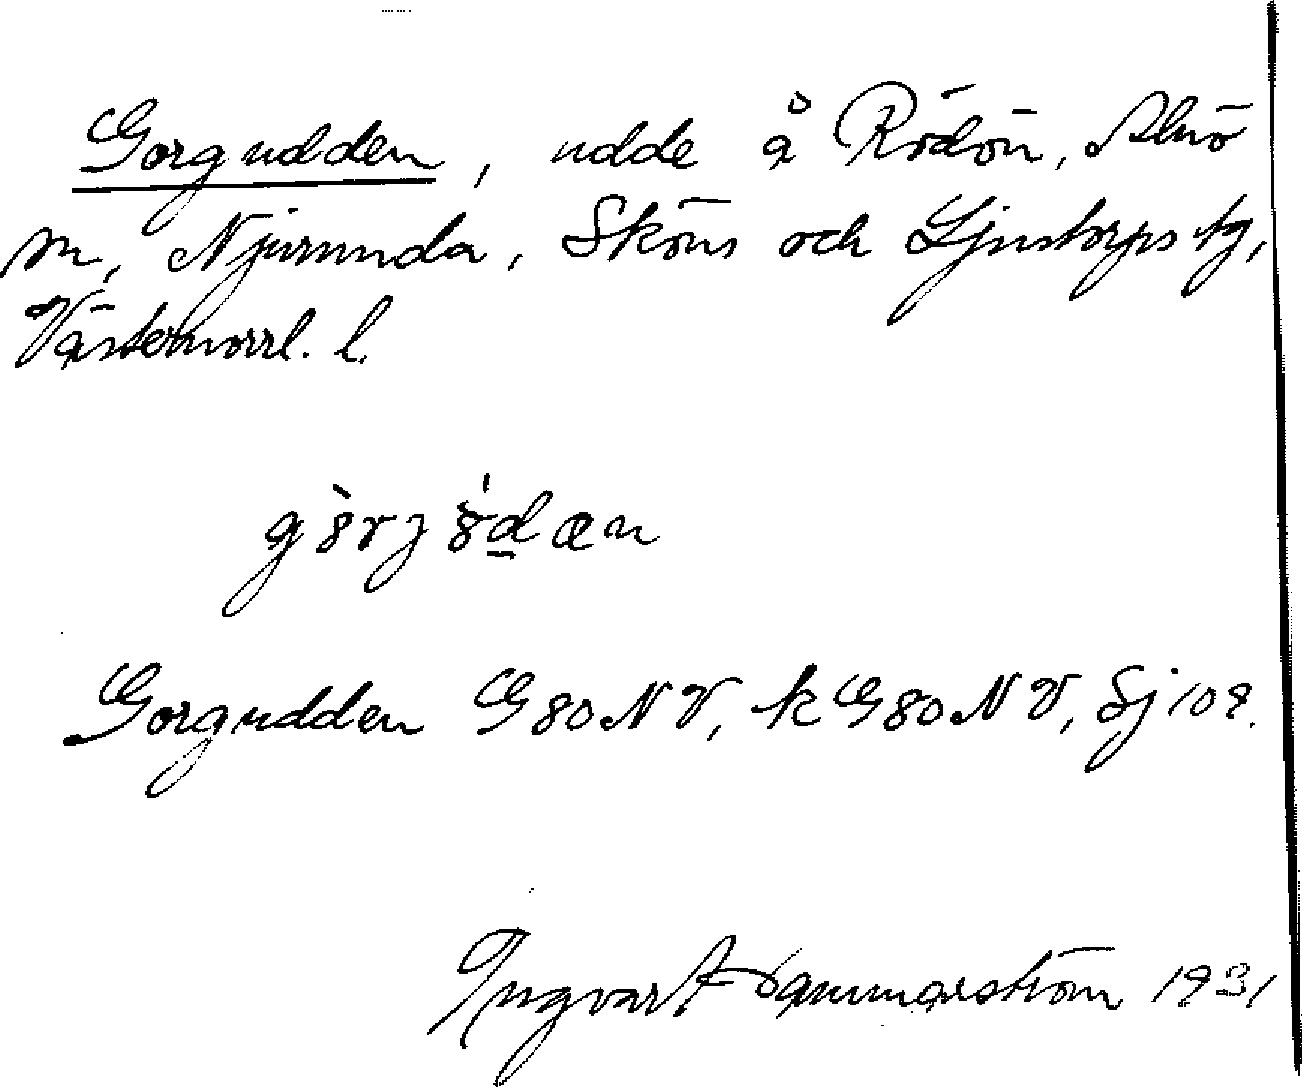 Gorgudden, udde å Rödön, Alnö
sn, Njurunda, Sköns och Ljustorps tg,
Västernorrl. l.
Gorgudden G80NV, k G80NV, Sj 109.
Ingvar Hammarström 1931